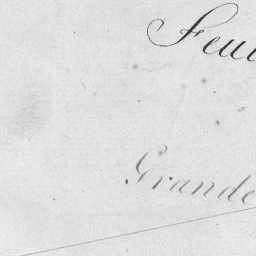 Feui
Grande